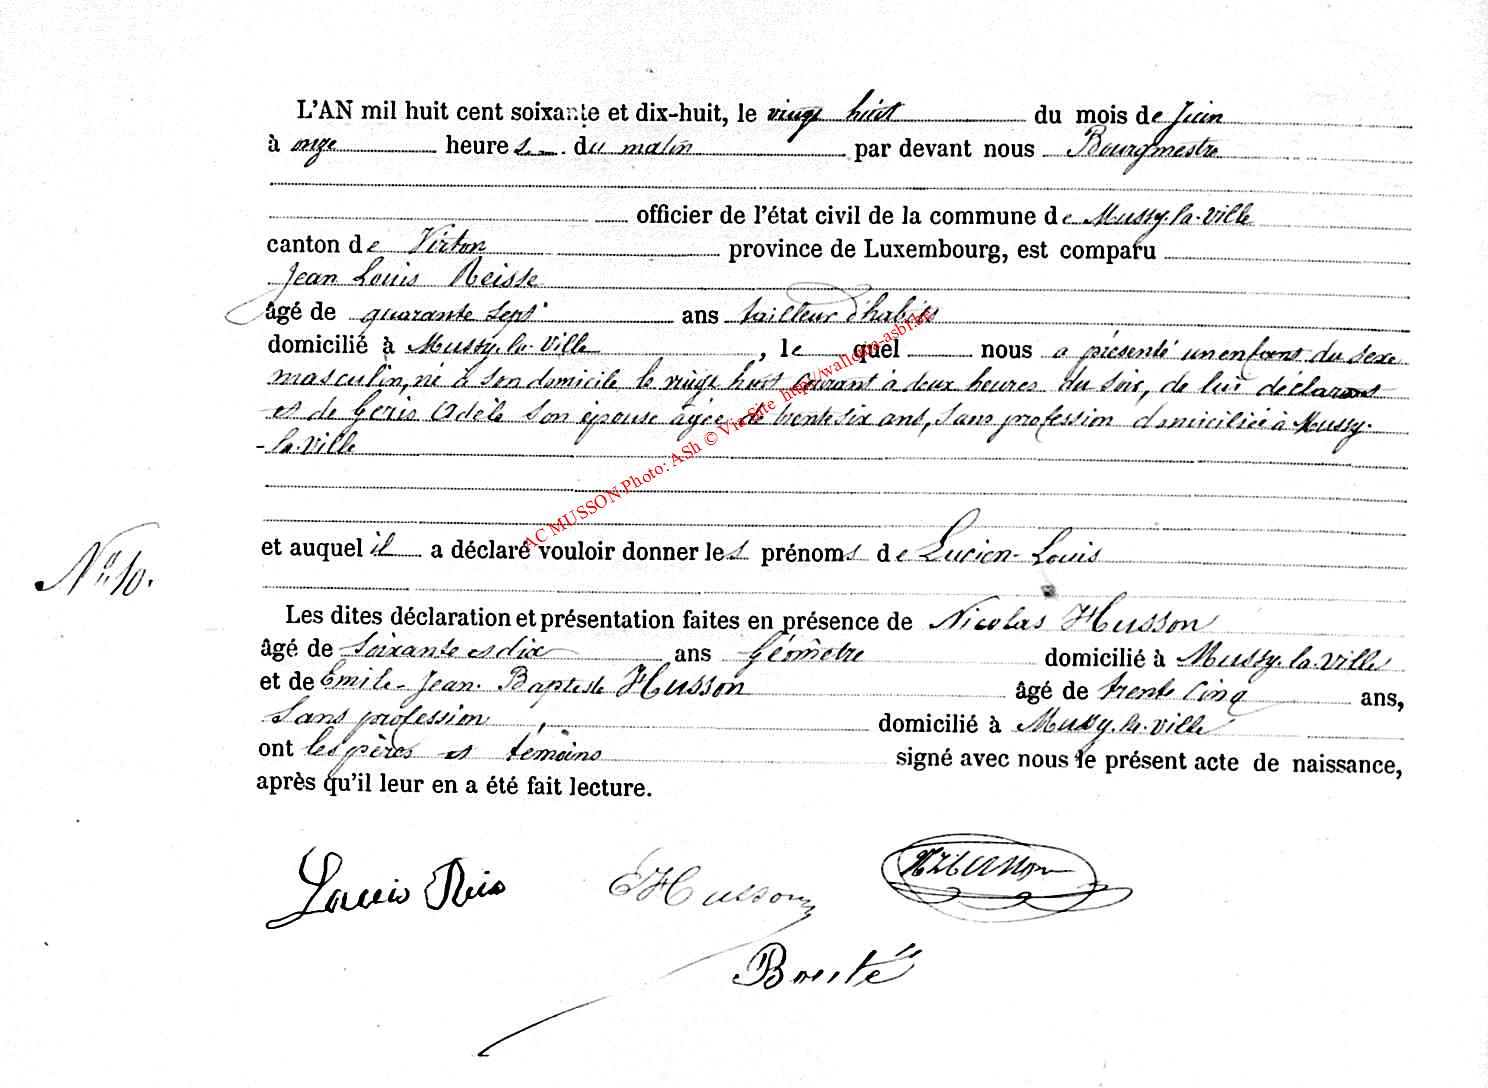 L'AN mil huit cent soixante et dix-huit, le vingt huit du mois de Juin
à onze heures du matin par devant nous Bourgmestre
officier de l'état civil de la commune de Mussy-la-Ville
canton de Virton province de Luxembourg, est comparu
Jean Louis Reisse
âgé de quarante sept ans tailleur d'habits
domicilié à Mussy-la-Ville, lequel nous a présenté un enfant du sexe
masculin, né à son domicile le vingt huit courant à deux heures du soir, de lui déclarant
et de Géris Adèle son épouse agée de trente six ans, sans profession domiciliée à Mussy-
-la-Ville
et auquel il a déclaré vouloir donner les prénoms de Lucien-Louis
No 10.
Les dites déclaration et présentation faites en présence de Nicolas Husson
âgé de soixante et dix ans Géomètre domicilié à Mussy-la-Ville
et de Emile-Jean-Baptiste Husson âgé de trente cinq ans,
Sans profession, domicilié à Mussy-la-Ville
ont les pères et témoins signé avec nous le présent acte de naissance,
après qu'il leur en a été fait lecture.
Louis Reis EHusson NHusson
AC MUSSON Photo: ASh © Via Site http://wallonia-asbl.be